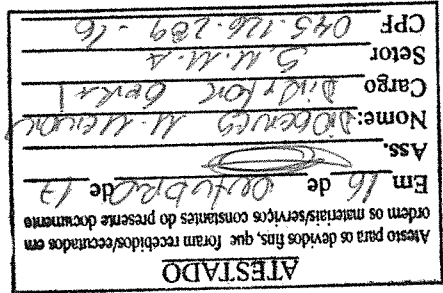 ATESTADO
Atesto para os devidos fins, que foram recebidos/executados em
ordem os materiais/serviços constantes do presente documento
Em 16 de OUTUBRO de 17
Ass.
Nome: DIOGENES M.
Cargo DIRETOR GERAL
Setor S.M.M.A
CPF 045.126.289-16